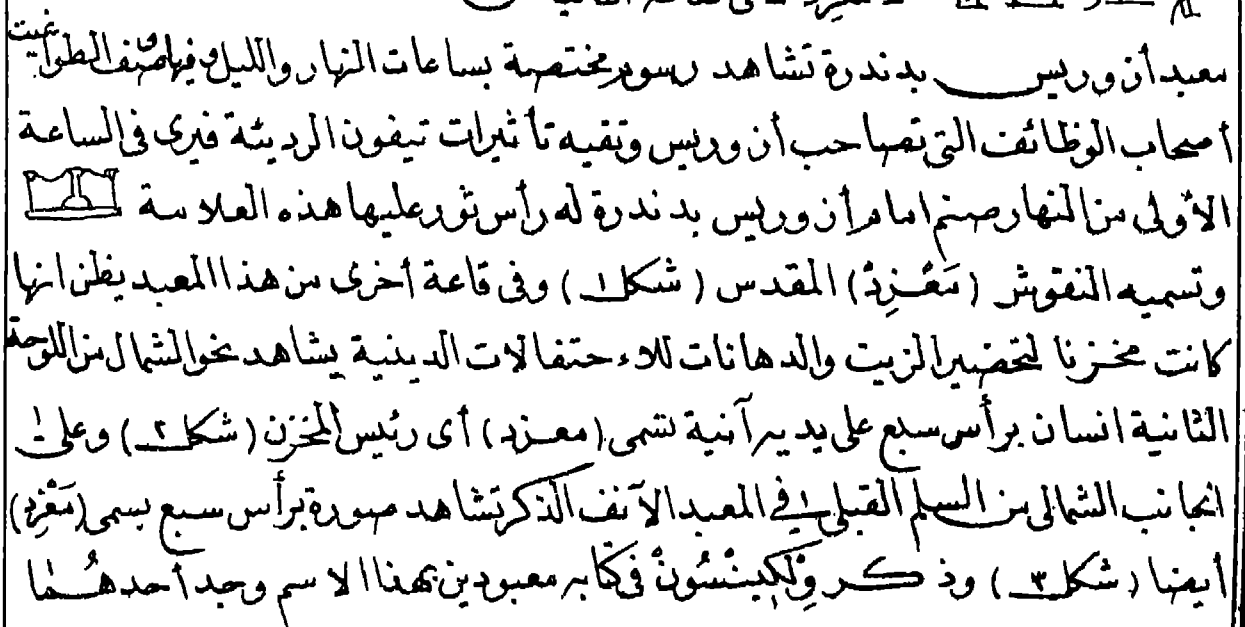 معبد أزوريس بدندرة تشاهد رسوم مختصة بساعات النهار والليل وفيها صنف الطواغيت
أصحاب الوظائف التى تصاحب أزوريس وتقيه تأثيرات تيفون الرديئة فيرى فى الساعة
الأولى من النهار صنم امام أزوريس بدندرة له رأس ثور عليها هذه العلامة
وتسميه النقوش (مَعْزِدْ) المقدس (شكل ١) وفى قاعة أخرى من هذا المعبد يظن انها
كانت مخزنا لتحضير الزيت والدهانات للاحتفالات الدينية يشاهد نحو الشمال من اللوحة
الثانية انسان برأس سبع على يديه آنية تسمى (معزد) أى رئيس المخزن (شكل ٢) وعلى
الجانب الشمالى من السلم القبلى فى المعبد الآنف الذكر تشاهد صورة برأس سبع يسمى (مَعْزِدْ)
أيضا (شكل ٣) وذكر وِلْكِينْسُونْ فى كتابه معبودين بهذا الاسم وجد أحدهُما